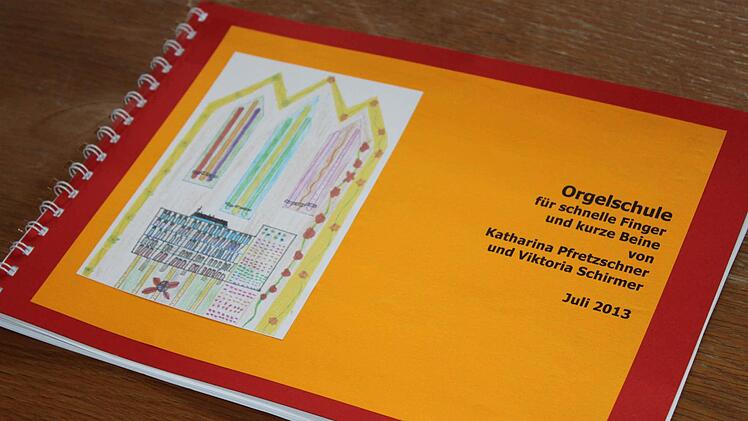 Orgelschule
für schnelle Finger
und kurze Beine
von
Katharina Pfretzschner
und Viktoria Schirmer
Juli 2013